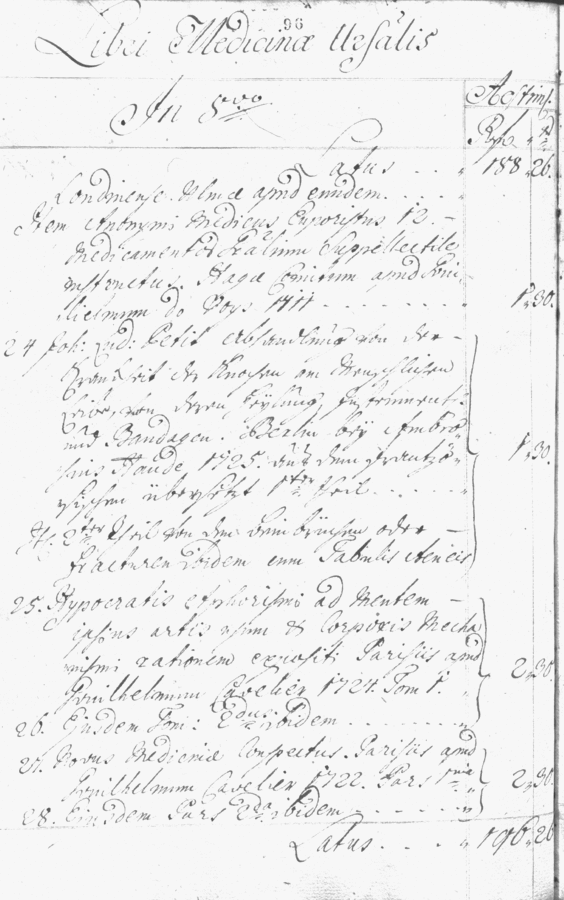 96
Libri Medicinæ Ursalis
In 8vo
Aestim.
Rf xr
Latus . . . . 188 26.
Londinense. Ulmæ apud eundem. . . .
Item Anonymi Medicus Exporistus 12 –
Medicamentor Realium Suppellectile
instructus. Hagæ Comitum apud Gui-
lielmum do Voys 1711 - - - - - - - 1 30.
24 Joh: Lud: Petit Abhandlung von der –
Kranckheit der Knochen am Menschlichen
Leibe, von deren Instrument.
und Bandagen. Berlin bey Ambro-
sius Haude 1725. aus dem Frantzö- 1 30.
sischen übersetzt 1ter Theil . . . .
It: 2ter Theil von den Beinbrüchen oder –
Fracturen ibidem cum Tabulis Aeneis
25. Hypocratis Aphorismi ad Mentem –
ipsius artis usum & Corporis Mecha
nismi rationem expositi Parisiis apud 2 30.
Guilhelmum Cavelier 1724. Tom 1.
26. Ejusdem Tomi: 2dus ibidem - - - - - -
27. Novus Medicinæ Conspectus. Parisiis apud
Guilhelmum Cavelier 1722. Pars 1ma 2 30.
28. Ejusdem Pars 2da ibidem - - - - -
Latus . . . . 196 26